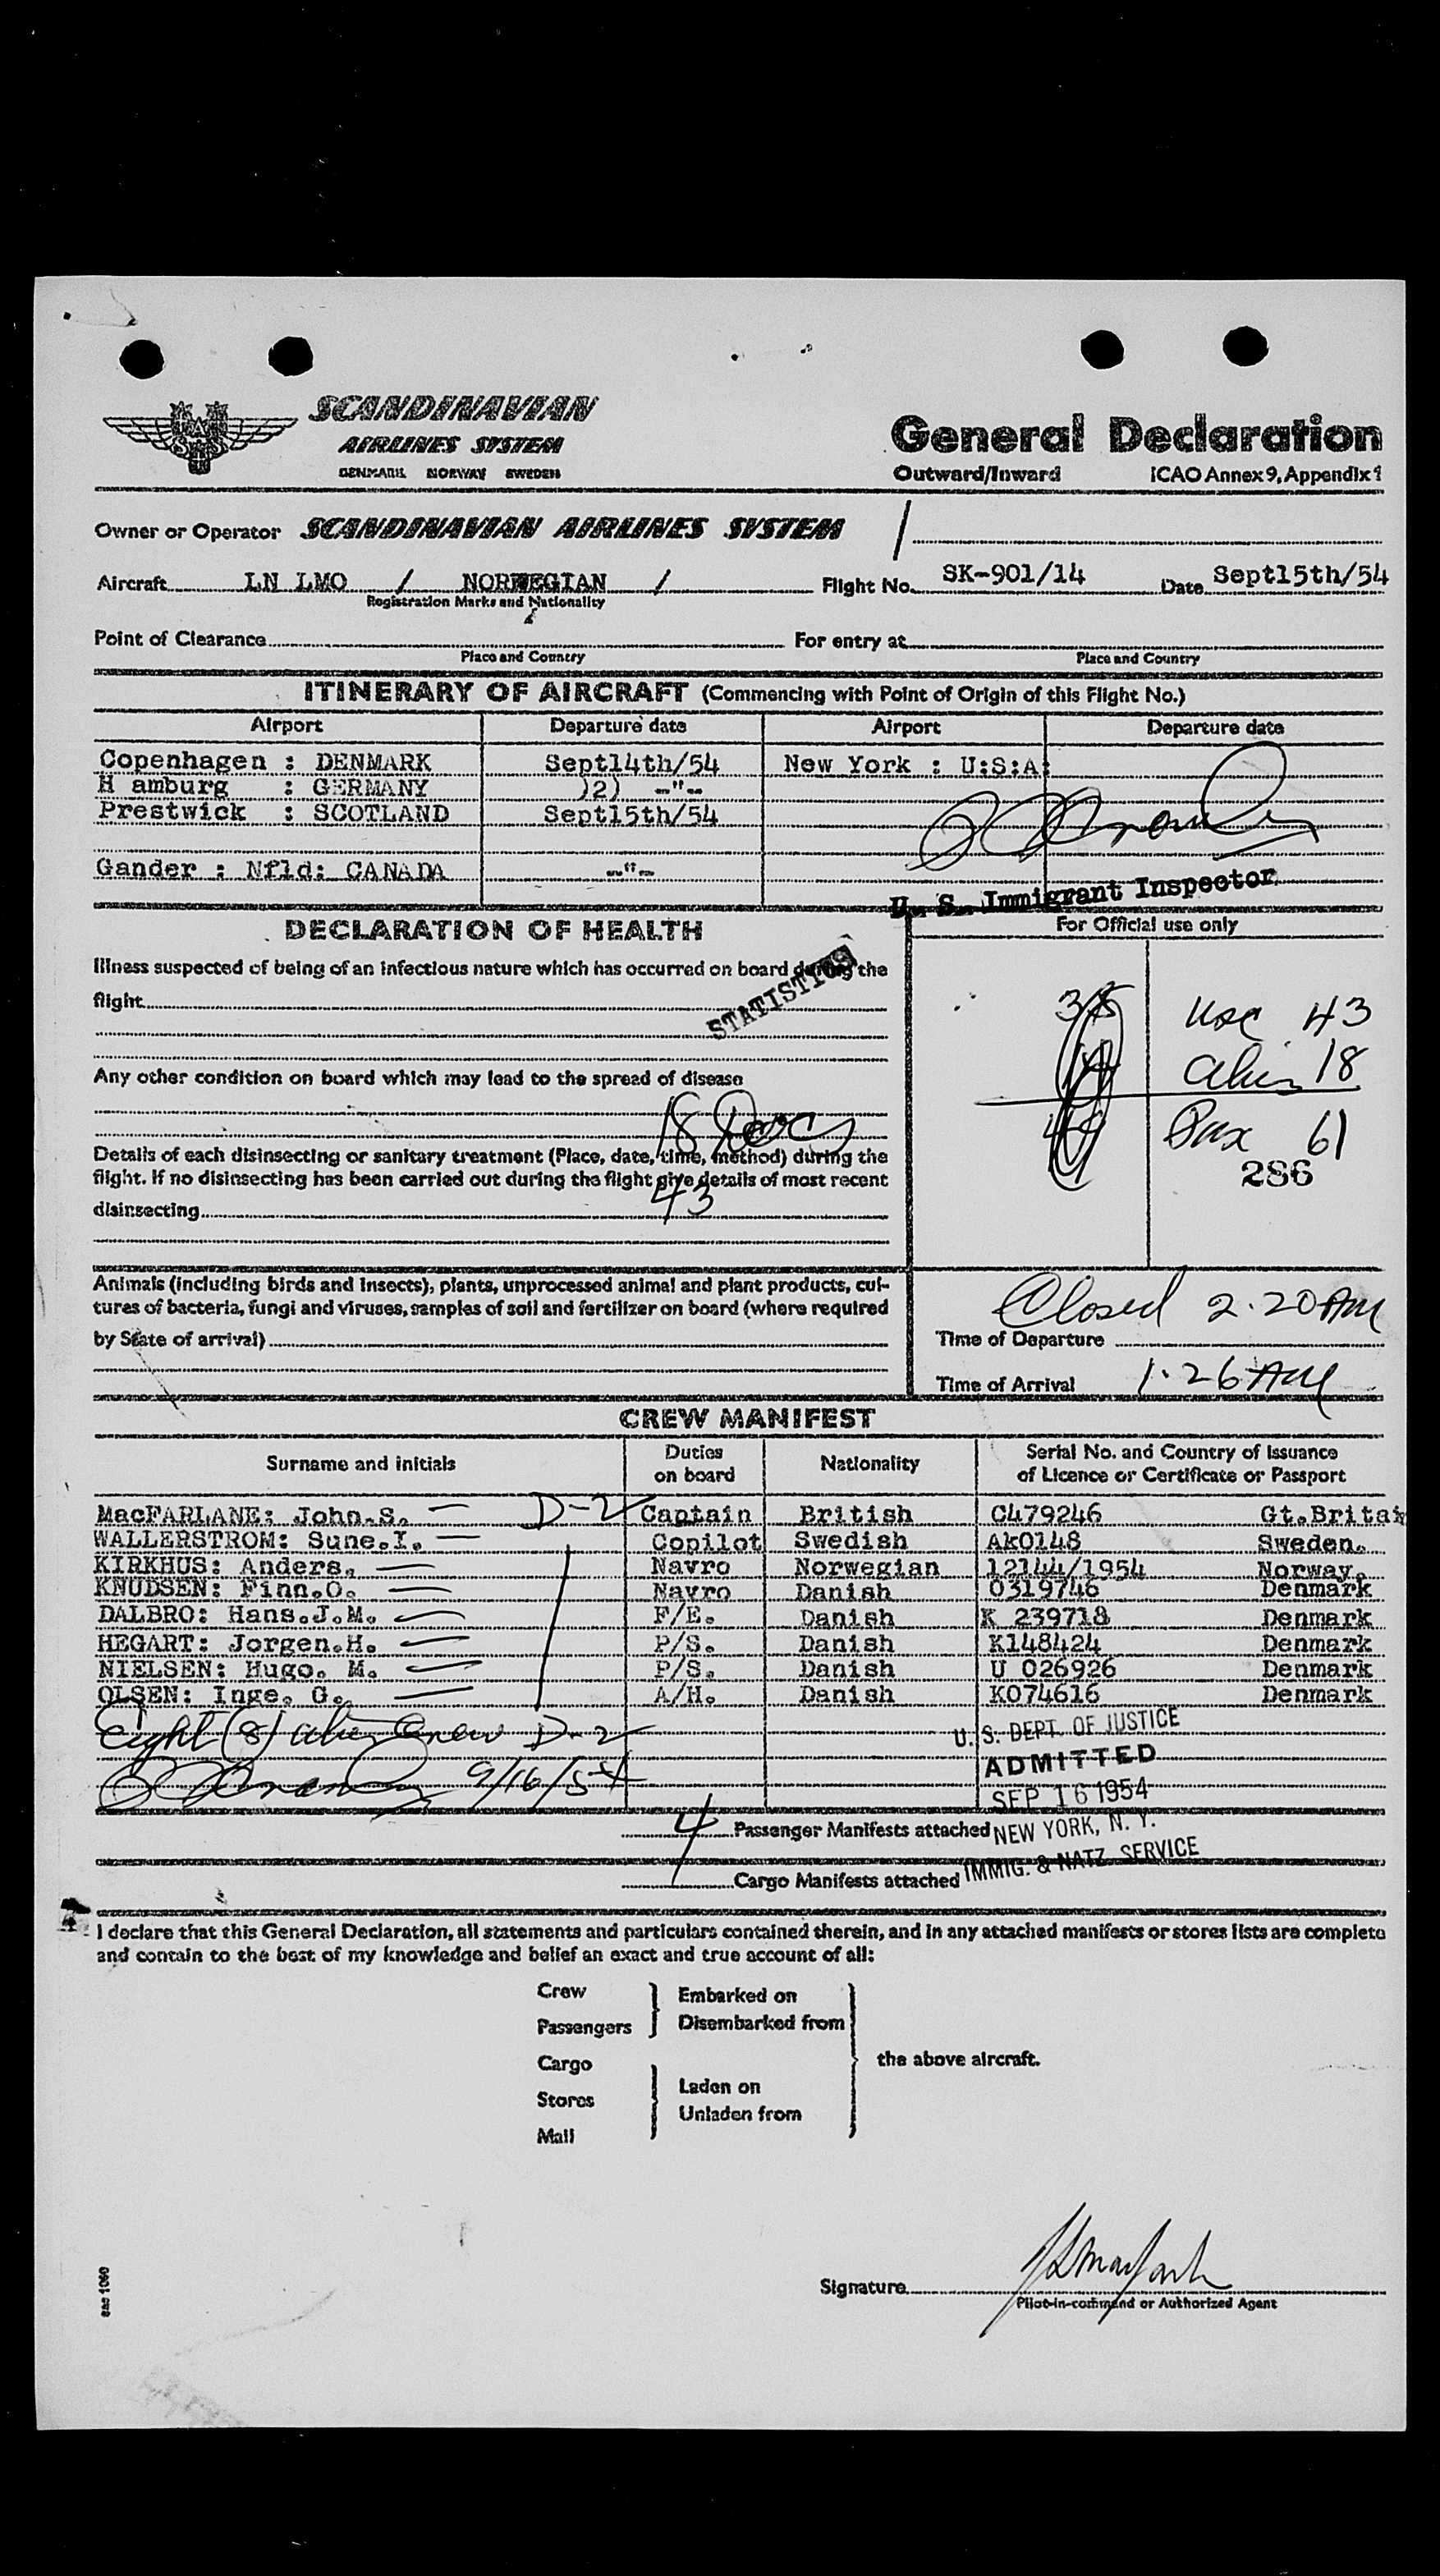 SCANDINAVIAN
AIRLINES SYSTEM
DENMARK NORWAY SWEDEN
General Declaration
Outward/Inward ICAO Annex 9, Appendix 1
Owner or Operator SCANDINAVIAN AIRLINES SYSTEM /
Aircraft LN LMO / NORWEGIAN / Flight No. SK-901/14 Date Sept15th/54
Registration Marks and Nationality
Point of Clearance For entry at
Place and Country Place and Country
ITINERARY OF AIRCRAFT (Commencing with Point of Origin of this Flight No.)
Airport Departure date Airport Departure date
Copenhagen : DENMARK Sept14th/54 New York : U:S:A:
H amburg : GERMANY )2) -"-
Prestwick : SCOTLAND Sept15th/54
Gander : Nfld: CANADA -"-
U. S. Immigrant Inspector
DECLARATION OF HEALTH
For Official use only
Illness suspected of being of an infectious nature which has occurred on board during the
flight
STATISTICS
Usc 43
Alien 18
Pax 61
286
Any other condition on board which may lead to the spread of disease
18 Docs
Details of each disinsecting or sanitary treatment (Place, date, time, method) during the
flight. If no disinsecting has been carried out during the flight give details of most recent
43
disinsecting
Animals (including birds and insects), plants, unprocessed animal and plant products, cul-
tures of bacteria, fungi and viruses, samples of soil and fertilizer on board (where required
by State of arrival)
Closed 2.20 AM
Time of Departure
Time of Arrival 1.26 AM
CREW MANIFEST
Surname and initials Duties on board Nationality Serial No. and Country of Issuance of Licence or Certificate or Passport
MacFARLANE: John.S. D-2 Captain British C479246 Gt.Britain
WALLERSTROM: Sune.I. Copilot Swedish Ak0148 Sweden.
KIRKHUS: Anders. Navro Norwegian 12144/1954 Norway.
KNUDSEN: Finn.O. Navro Danish 0319746 Denmark
DALBRO: Hans.J.M. F/E. Danish K 239718 Denmark
HEGART: Jorgen.H. P/S. Danish K148424 Denmark
NIELSEN: Hugo. M. P/S. Danish U 026926 Denmark
OLSEN: Inge. G. A/H. Danish K074616 Denmark
Eight (8) alien Crew D-2
9/16/54
U. S. DEPT. OF JUSTICE
ADMITTED
SEP 16 1954
NEW YORK, N. Y.
IMMIG. & NATZ. SERVICE
4 Passenger Manifests attached
Cargo Manifests attached
I declare that this General Declaration, all statements and particulars contained therein, and in any attached manifests or stores lists are complete
and contain to the best of my knowledge and belief an exact and true account of all:
Crew
Passengers
Embarked on
Disembarked from
Cargo
Stores
Mail
Laden on
Unladen from
the above aircraft.
Signature
Pilot-in-command or Authorized Agent
sas 1060